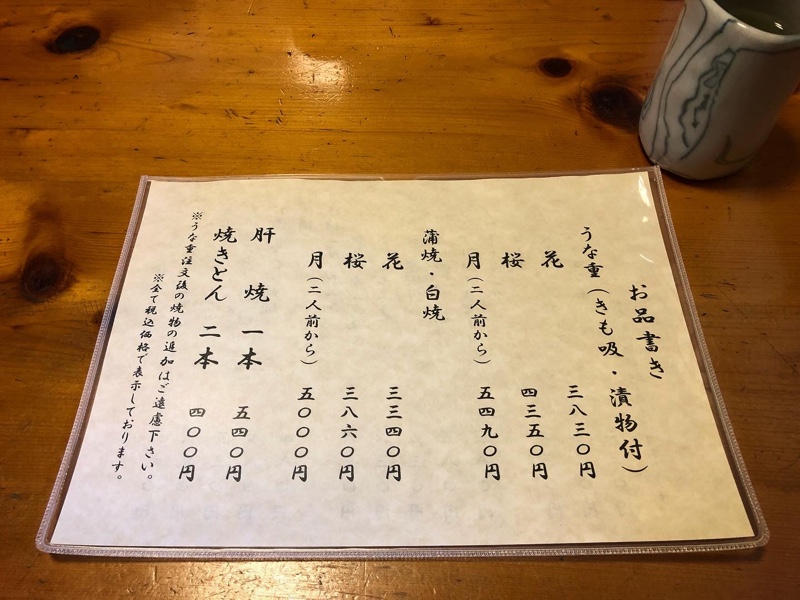 お品書き
うな重（きも吸・漬物付）
花 三八三〇円
桜 四三五〇円
月（二人前から） 五四九〇円
蒲焼・白焼
花 三三四〇円
桜 三八六〇円
月（二人前から） 五〇〇〇円
肝焼 一本 五四〇円
焼きとん 二本 四〇〇円
※うな重注文後の焼物の追加はご遠慮下さい。
※全て税込価格で表示しております。